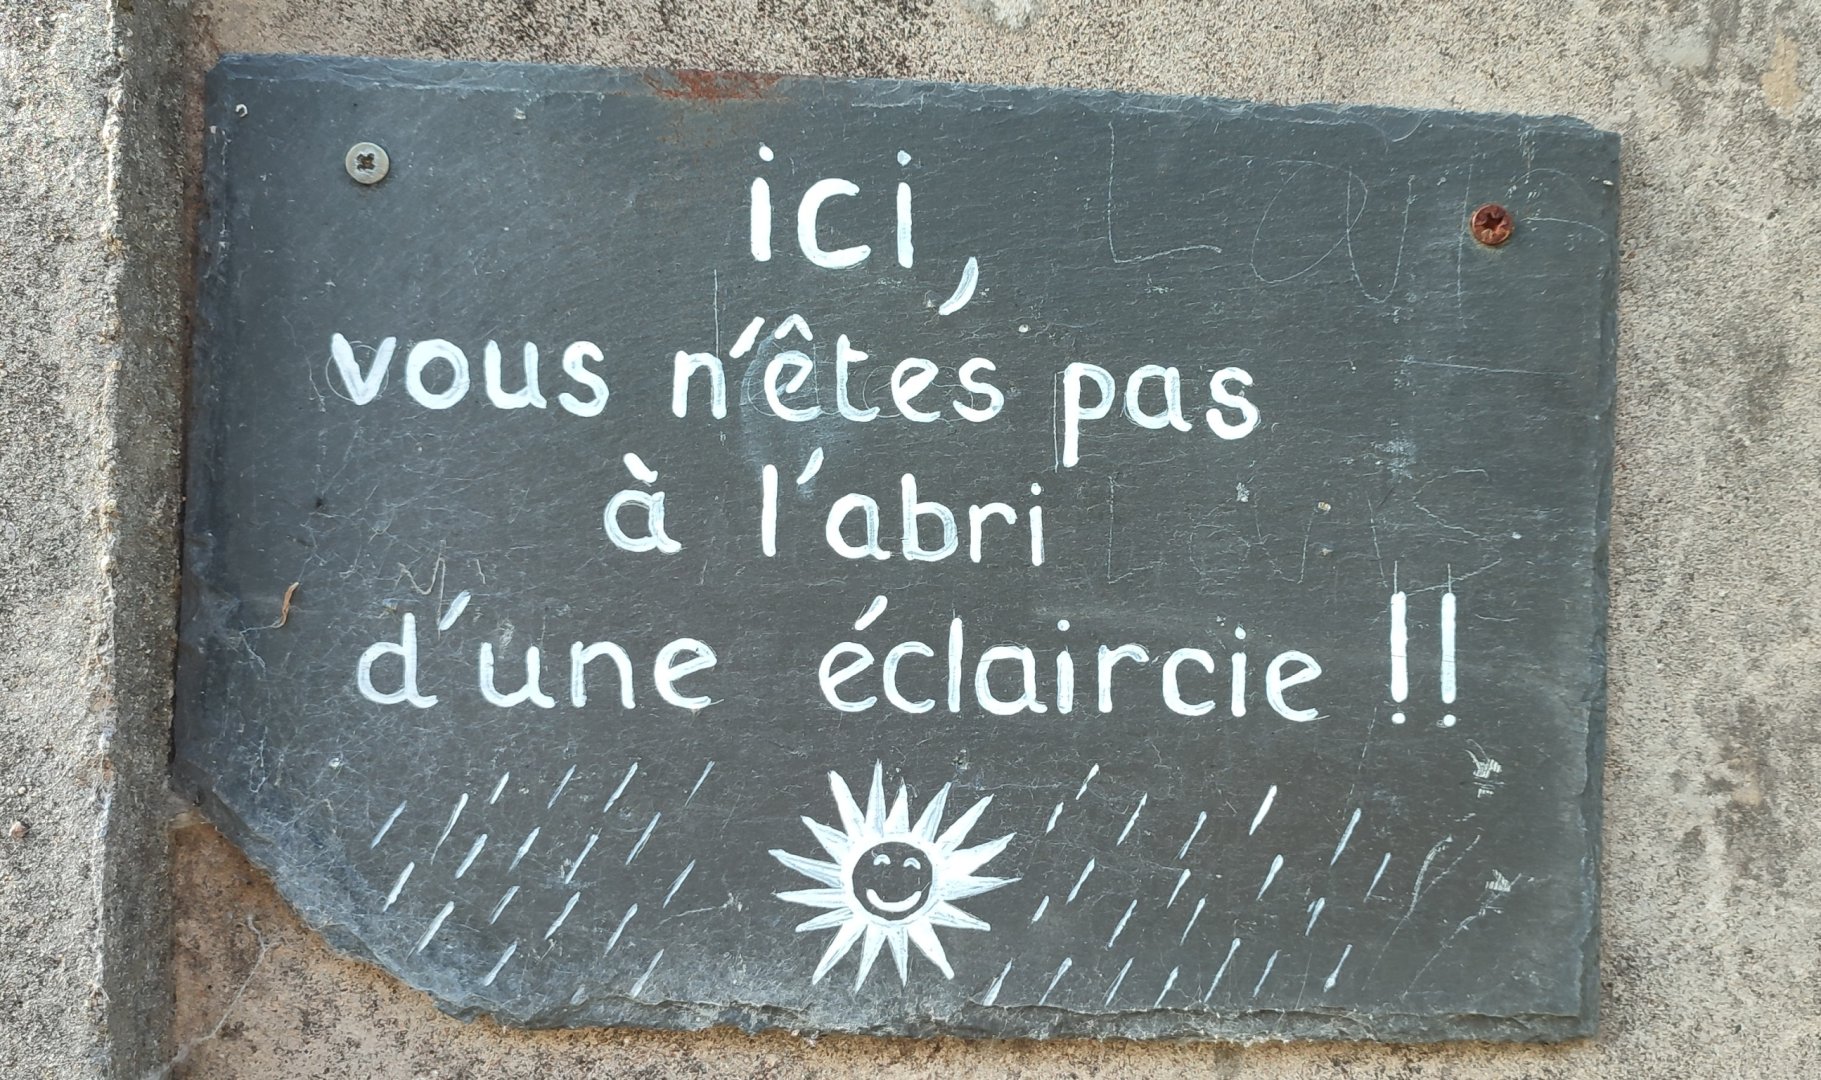 ici,
vous n'êtes pas
à l'abri
d'une éclaircie !!